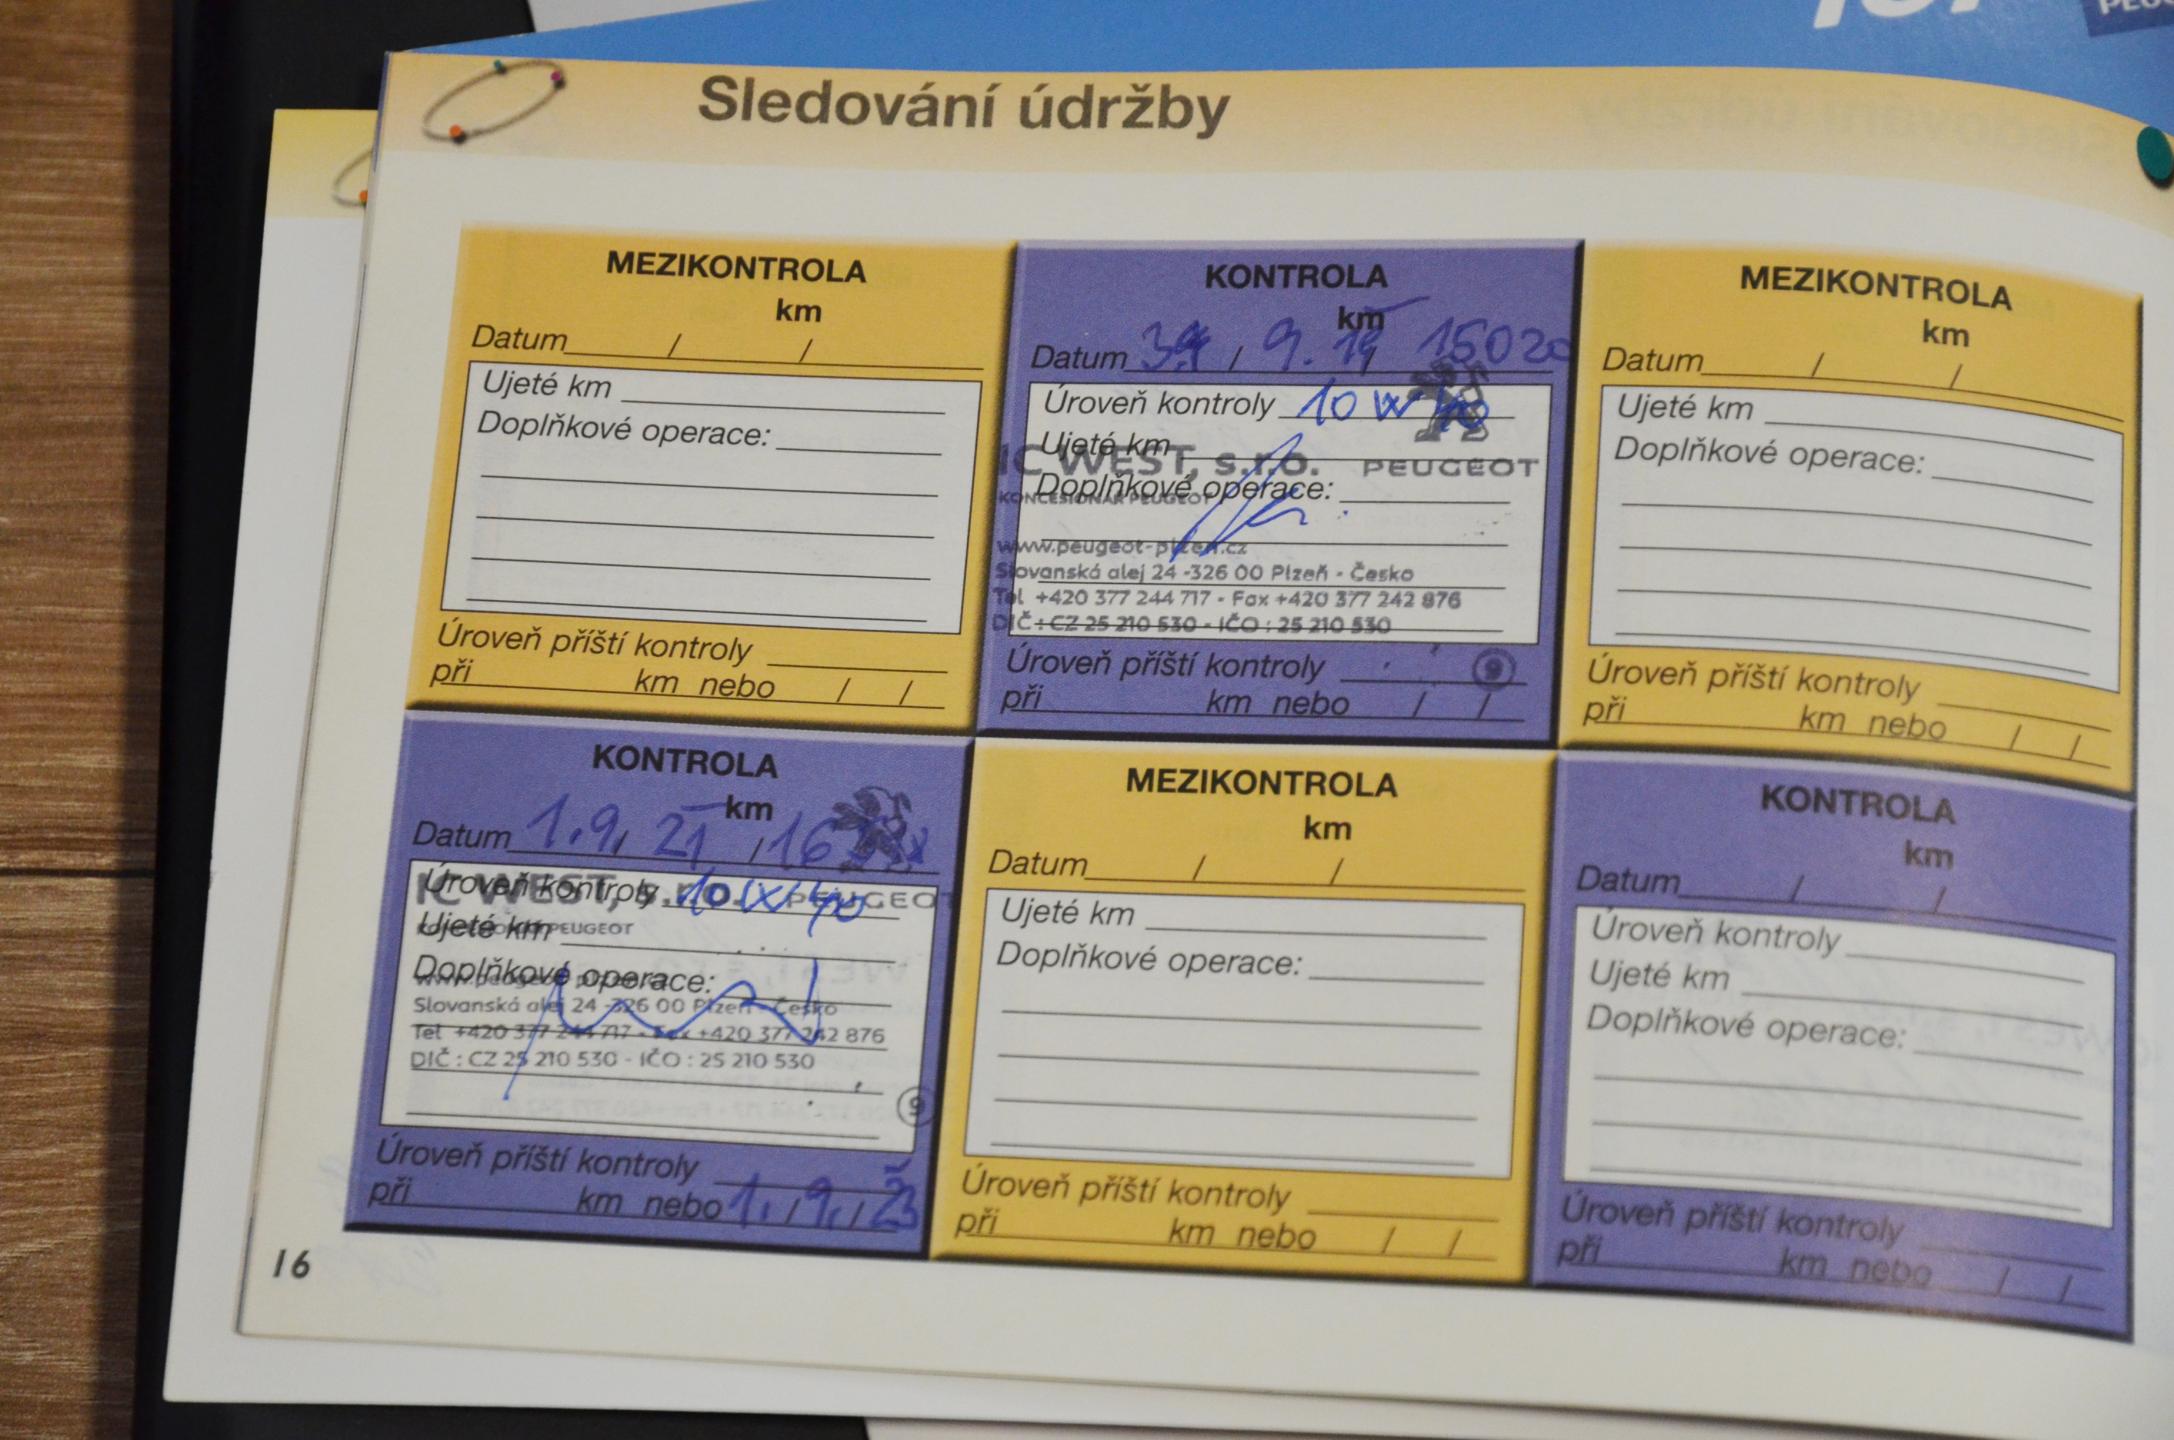 Sledování údržby
MEZIKONTROLA
km
Datum / /
Ujeté km
Doplňkové operace:
Úroveň příští kontroly
při km nebo / /
KONTROLA
km
Datum / 9. / 15020
Úroveň kontroly 10 W 40
Ujeté km
IC WEST, s.r.o. PEUGEOT
Doplňkové operace:
KONCESIONÁŘ PEUGEOT
www.peugeot-plzen.cz
Slovanská alej 24 -326 00 Plzeň - Česko
Tel +420 377 244 717 - Fax +420 377 242 876
DIČ : CZ 25 210 530 - IČO : 25 210 530
Úroveň příští kontroly 9
při km nebo / /
MEZIKONTROLA
km
Datum / /
Ujeté km
Doplňkové operace:
Úroveň příští kontroly
při km nebo / /
KONTROLA
km
Datum 1.9./ 21 /
Úroveň kontroly 10 W 40
IC WEST, s.r.o. PEUGEOT
Ujeté km
KONCESIONÁŘ PEUGEOT
Doplňkové operace:
www.peugeot-plzen.cz
Slovanská alej 24 -326 00 Plzeň - Česko
Tel +420 377 244 717 - Fax +420 377 242 876
DIČ : CZ 25 210 530 - IČO : 25 210 530
9
Úroveň příští kontroly
při km nebo 1. / 9. / 23
MEZIKONTROLA
km
Datum / /
Ujeté km
Doplňkové operace:
Úroveň příští kontroly
při km nebo / /
KONTROLA
km
Datum / /
Úroveň kontroly
Ujeté km
Doplňkové operace:
Úroveň příští kontroly
při km nebo / /
16